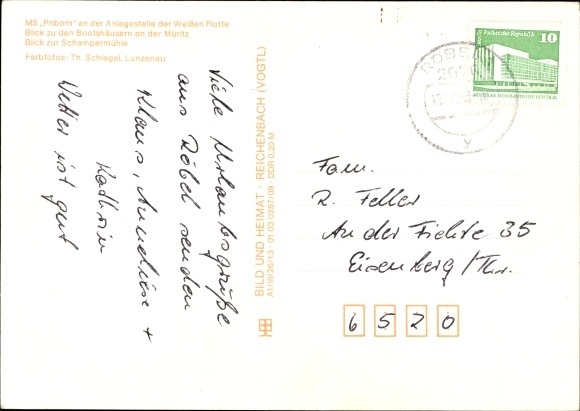 MS „Priborn" an der Anlegestelle der Weißen Flotte
Blick zu den Bootshäusern an der Müritz
Blick zur Schampermühle
Farbfotos: Th. Schlegel, Lunzenau
Viele Urlaubsgrüße
aus Röbel senden
Klaus, Anneliese +
Kathrin
Wetter ist gut
BILD UND HEIMAT · REICHENBACH (VOGTL)
A1/III/26/13 · 01 03 0287/09 · DDR 0,20 M
10
Palast der Republik
RÖBEL
2070
y
Fam.
R. Feller
An der Fichte 35
Eisenberg/Thür.
6520